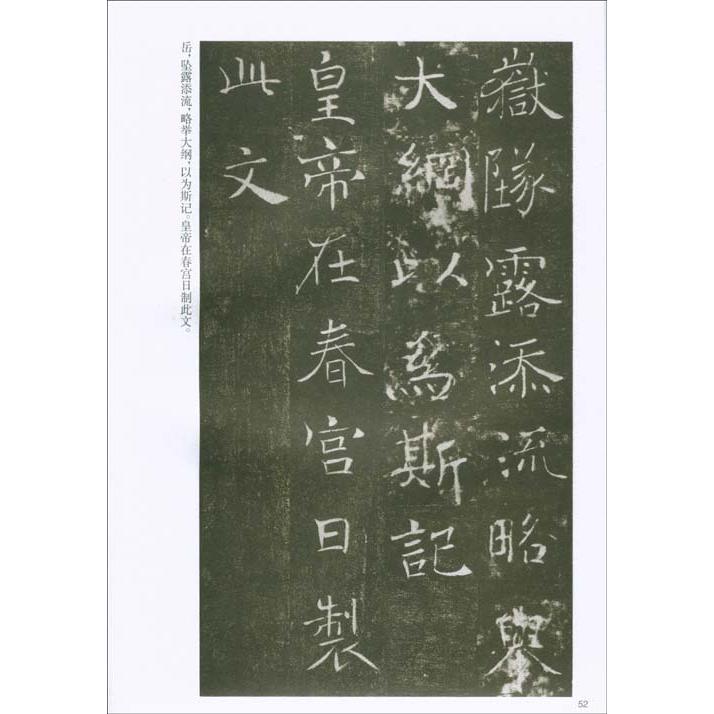 嶽墜露添流略舉
大綱以為斯記
皇帝在春宮日製
此文
岳，坠露添流，略举大纲，以为斯记。皇帝在春宫日制此文。
52